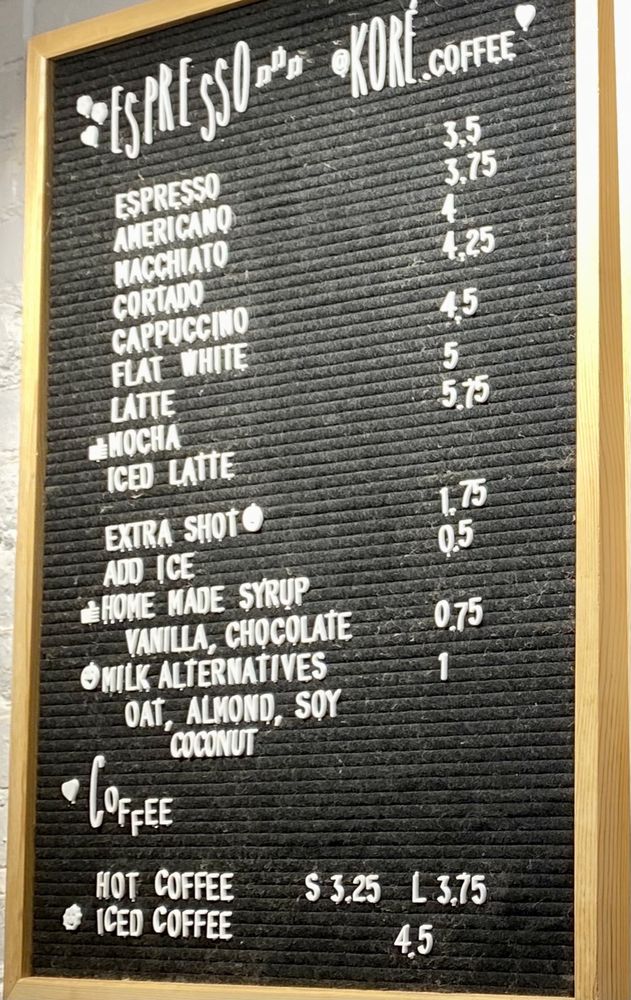 ESPRESSO @KORÉ.COFFEE
ESPRESSO 3.5
AMERICANO 3.75
MACCHIATO 4
CORTADO 4.25
CAPPUCCINO
FLAT WHITE 4.5
LATTE 5
MOCHA 5.75
ICED LATTE
EXTRA SHOT 1.75
ADD ICE 0.5
HOME MADE SYRUP
VANILLA, CHOCOLATE 0.75
MILK ALTERNATIVES 1
OAT, ALMOND, SOY
COCONUT
COFFEE
HOT COFFEE S 3.25 L 3.75
ICED COFFEE 4.5